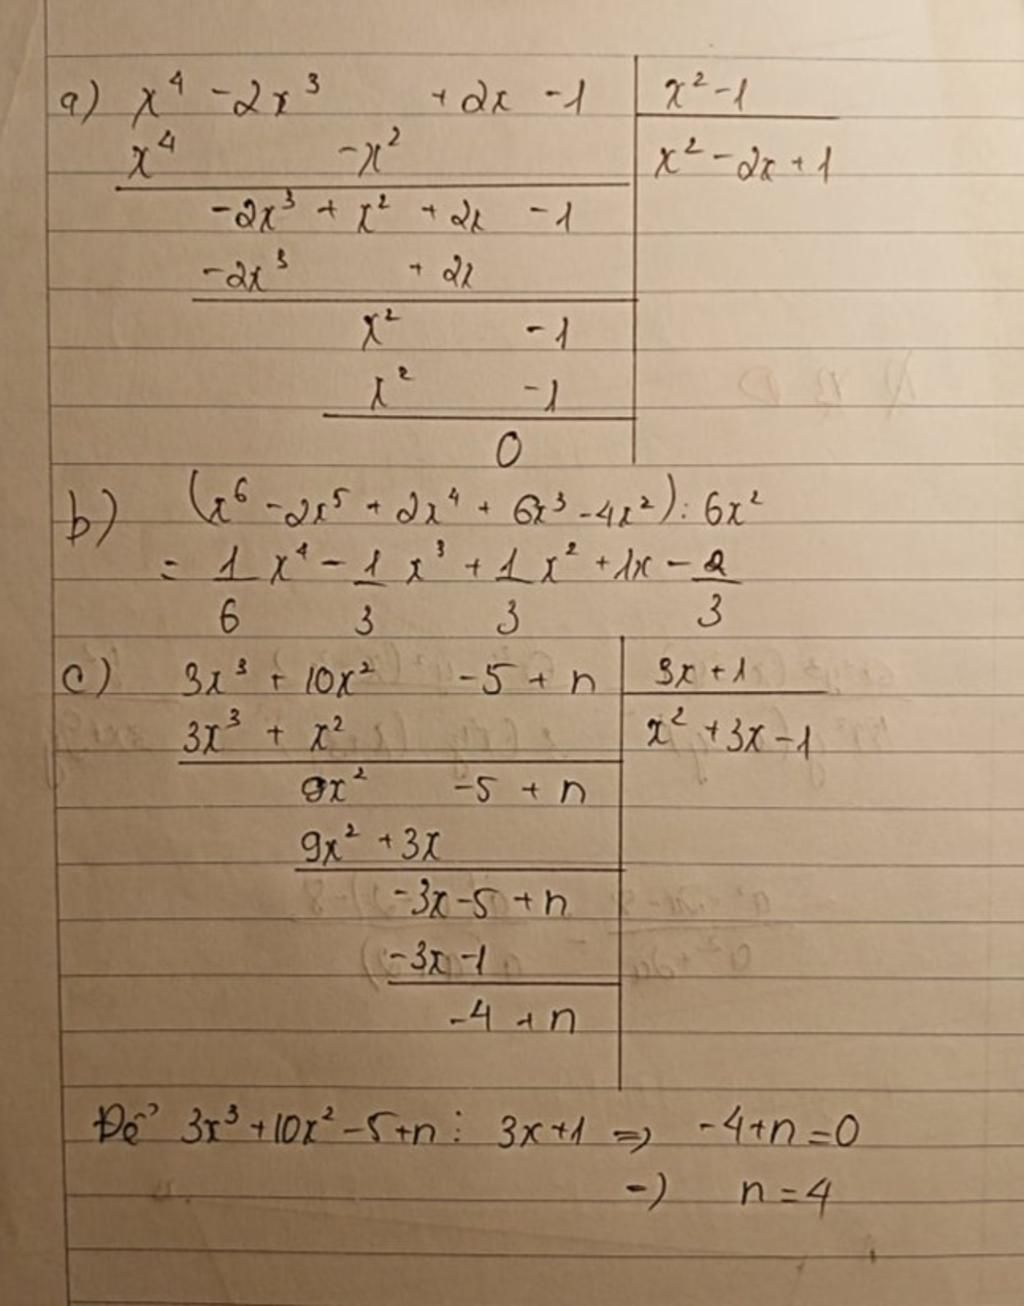 a) x⁴ - 2x³ + 2x - 1 | x² - 1
x⁴ - x² | x² - 2x + 1
-2x³ + x² + 2x - 1
-2x³ + 2x
x² - 1
x² - 1
0
b) (x⁶ - 2x⁵ + 2x⁴ + 6x³ - 4x²) : 6x²
= 1/6 x⁴ - 1/3 x³ + 1/3 x² + 1x - 2/3
c) 3x³ + 10x² - 5 + n | 3x + 1
3x³ + x² | x² + 3x - 1
9x² - 5 + n
9x² + 3x
-3x - 5 + n
-3x - 1
-4 + n
Để 3x³ + 10x² - 5 + n ⋮ 3x + 1 => -4 + n = 0
-) n = 4